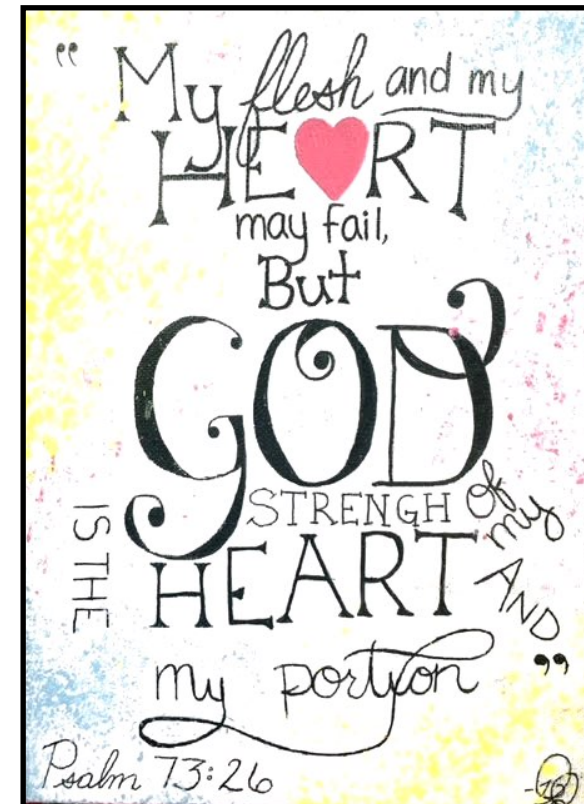 “My flesh and my
HE❤RT
may fail,
But
GOD
IS THE
STRENGH Of my
HEART AND
my portion”
Psalm 73:26